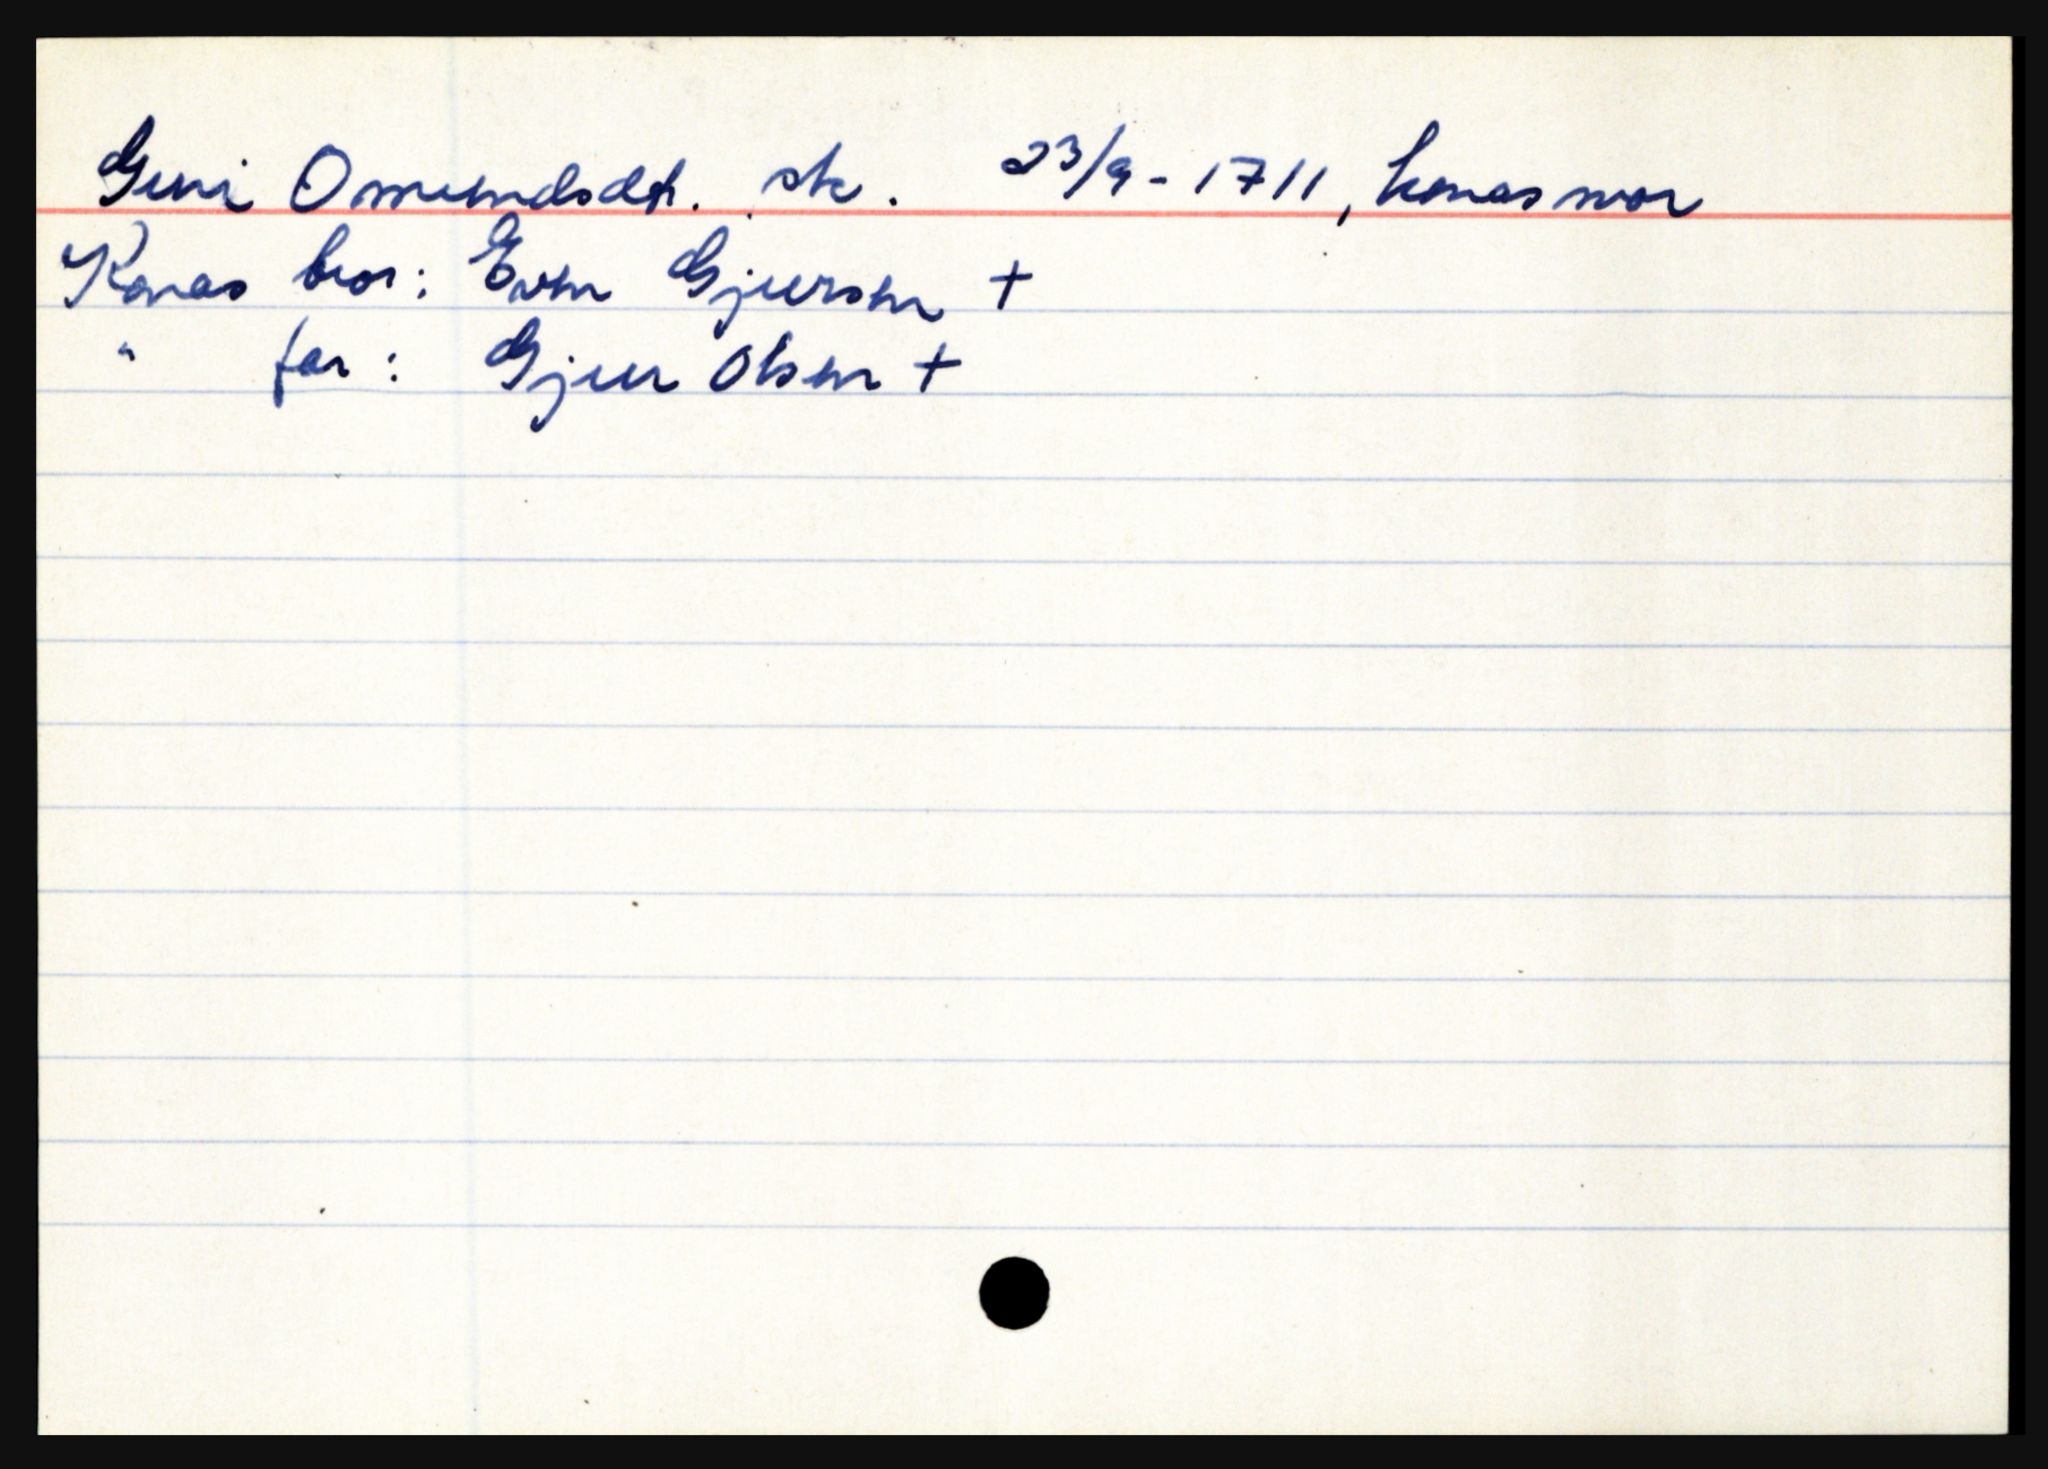 Guri Omundsdtr. sk. 23/9-1711, konas mor
Konas bror: Even Gjursen +
" far: Gjur Olsen +